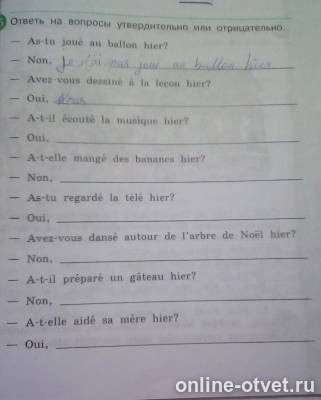 Ответь на вопросы утвердительно или отрицательно.
— As-tu joué au ballon hier?
— Non, je n'ai pas joué au ballon hier
— Avez-vous dessiné à la leçon hier?
— Oui, Nous
— A-t-il écouté la musique hier?
— Oui,
— A-t-elle mangé des bananes hier?
— Non,
— As-tu regardé la télé hier?
— Oui,
— Avez-vous dansé autour de l'arbre de Noël hier?
— Non,
— A-t-il préparé un gâteau hier?
— Non,
— A-t-elle aidé sa mère hier?
— Oui,
online-otvet.ru